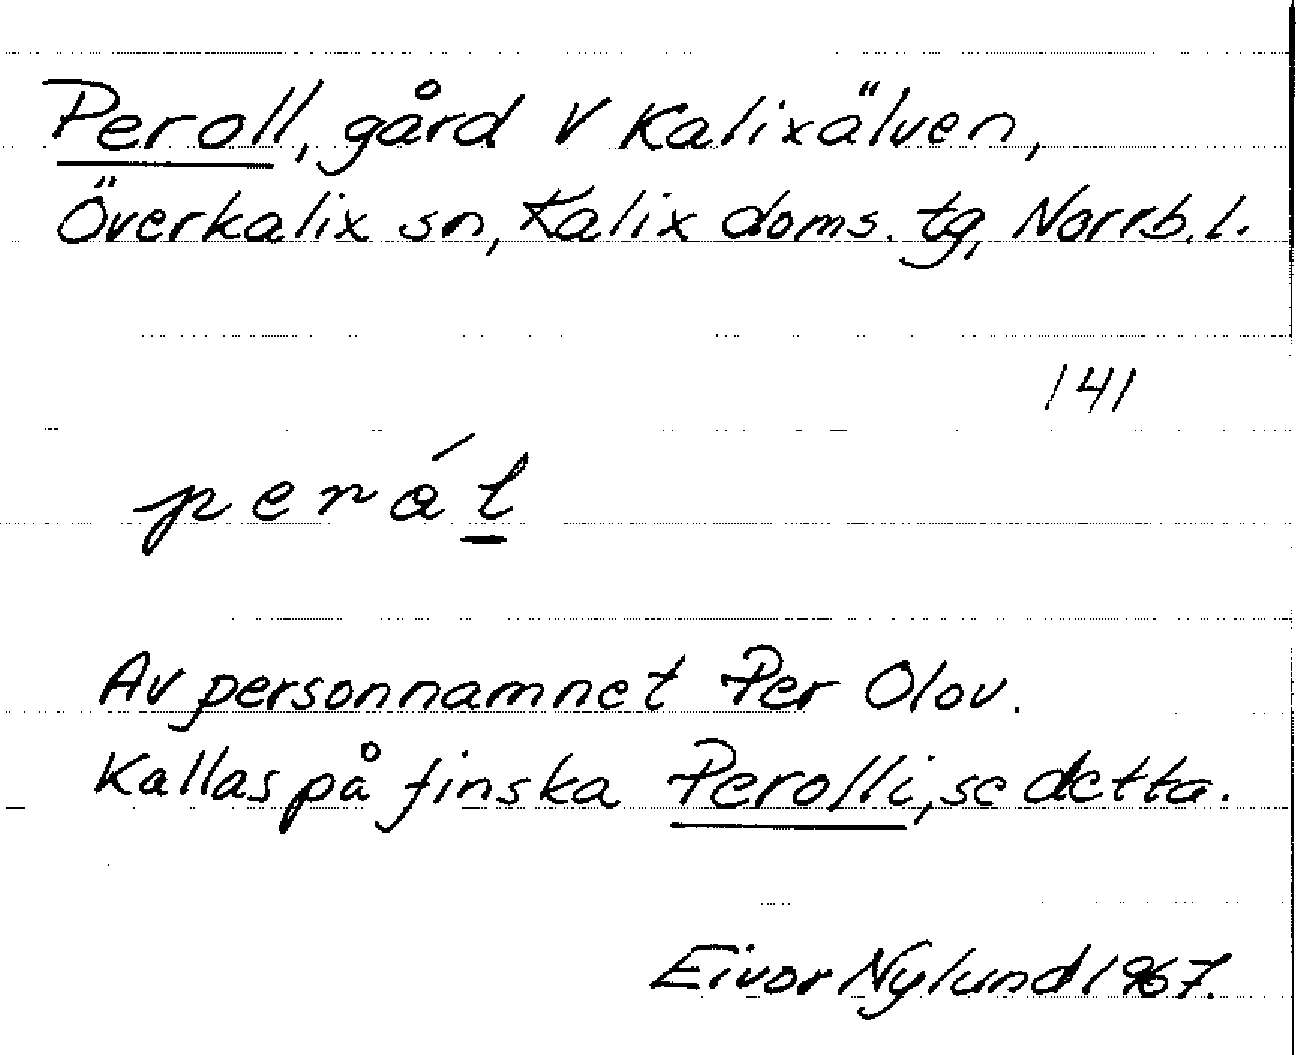 Peroll, gård V Kalixälven,
Överkalix sn, Kalix doms. tg, Norrb. l.
141
Av personnamnet Per Olov.
Kallas på finska Perolli, se detta.
Eivor Nylund 1967.